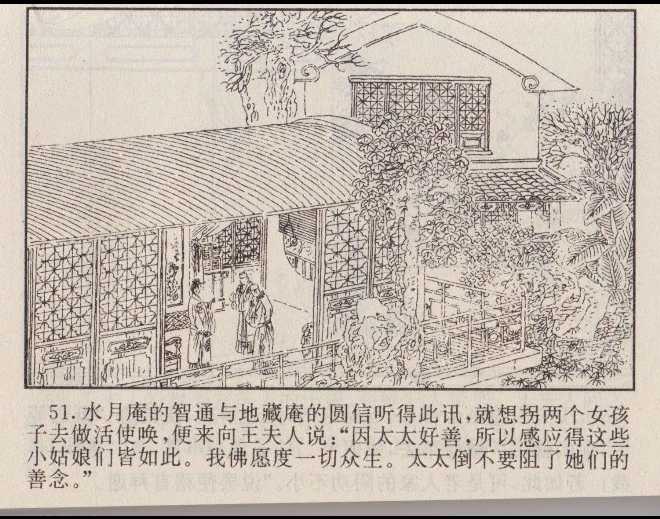 51. 水月庵的智通与地藏庵的圆信听得此讯，就想拐两个女孩
子去做活使唤，便来向王夫人说：“因太太好善，所以感应得这些
小姑娘们皆如此。我佛愿度一切众生。太太倒不要阻了她们的
善念。”